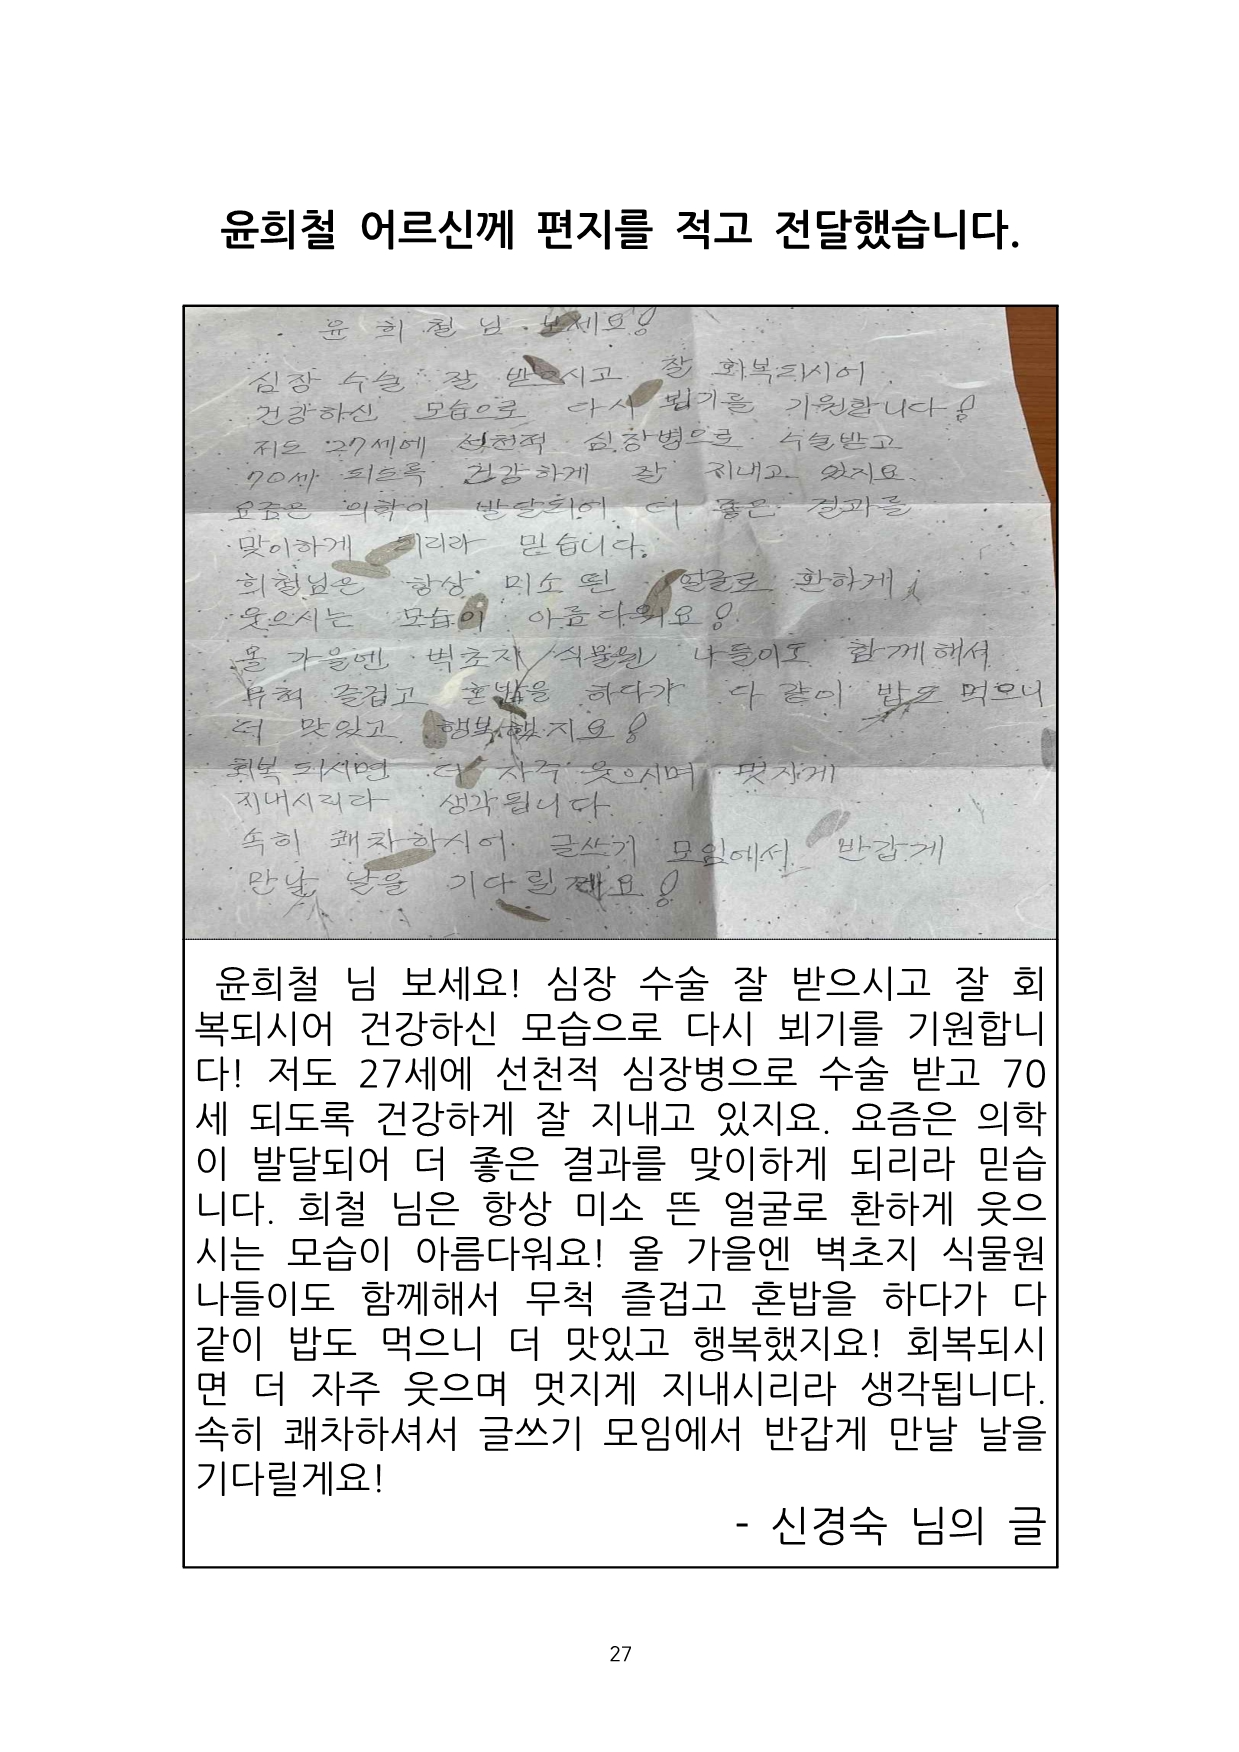 윤희철 어르신께 편지를 적고 전달했습니다.
윤 희 철 님 보세요!
심장 수술 잘 받으시고 잘 회복되시어
건강하신 모습으로 다시 뵙기를 기원합니다!
저도 27세에 선천적 심장병으로 수술받고
70세 되도록 건강하게 잘 지내고 있지요.
요즘은 의학이 발달되어 더 좋은 결과를
맞이하게 되리라 믿습니다.
희철님은 항상 미소 띤 얼굴로 환하게
웃으시는 모습이 아름다워요!
올 가을엔 벽초지 식물원 나들이도 함께해서
무척 즐겁고 혼밥을 하다가 다 같이 밥도 먹으니
더 맛있고 행복했지요!
회복되시면 더 자주 웃으시며 멋지게
지내시리라 생각됩니다
속히 쾌차하시어 글쓰기 모임에서 반갑게
만날 날을 기다릴게요!
윤희철 님 보세요! 심장 수술 잘 받으시고 잘 회
복되시어 건강하신 모습으로 다시 뵈기를 기원합니
다! 저도 27세에 선천적 심장병으로 수술 받고 70
세 되도록 건강하게 잘 지내고 있지요. 요즘은 의학
이 발달되어 더 좋은 결과를 맞이하게 되리라 믿습
니다. 희철 님은 항상 미소 뜬 얼굴로 환하게 웃으
시는 모습이 아름다워요! 올 가을엔 벽초지 식물원
나들이도 함께해서 무척 즐겁고 혼밥을 하다가 다
같이 밥도 먹으니 더 맛있고 행복했지요! 회복되시
면 더 자주 웃으며 멋지게 지내시리라 생각됩니다.
속히 쾌차하셔서 글쓰기 모임에서 반갑게 만날 날을
기다릴게요!
- 신경숙 님의 글
27